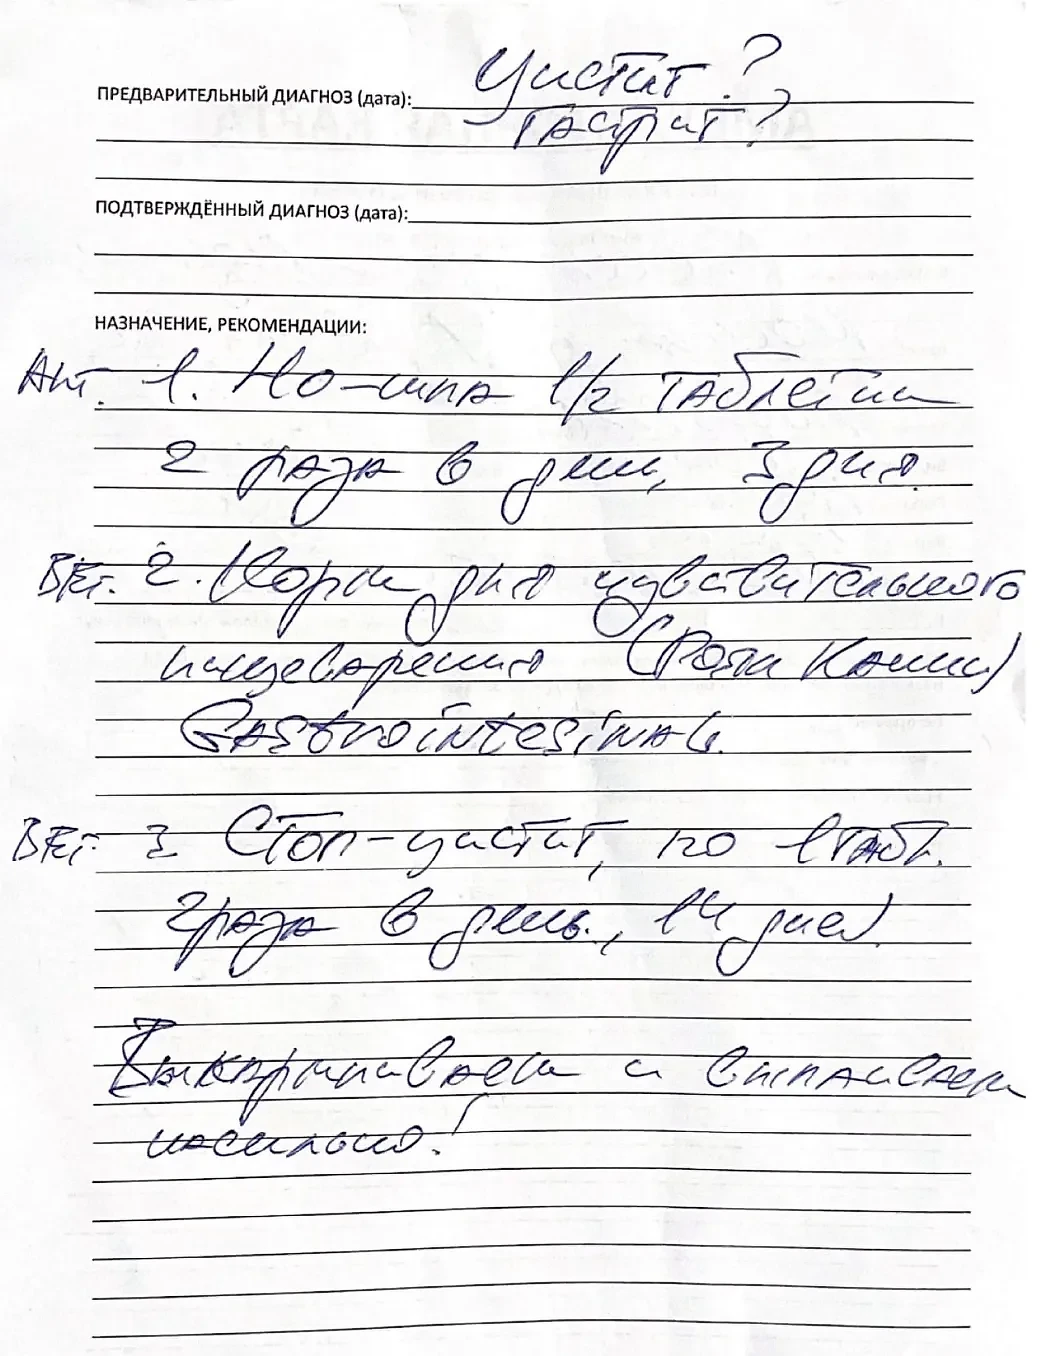 ПРЕДВАРИТЕЛЬНЫЙ ДИАГНОЗ (дата): Цистит?
Гастрит?
ПОДТВЕРЖДЁННЫЙ ДИАГНОЗ (дата):
НАЗНАЧЕНИЕ, РЕКОМЕНДАЦИИ:
Апт. 1. Но-шпа 1/2 таблетки
2 раза в день, 3 дня.
Вет. 2. Корм для чувствительного
пищеварения (Роял Канин)
Gastrointesinal.
Вет. 3 Стоп-цистит, по 1 табл.
2 раза в день., 14 дней.
Выкармливаем и выпаиваем
насильно!